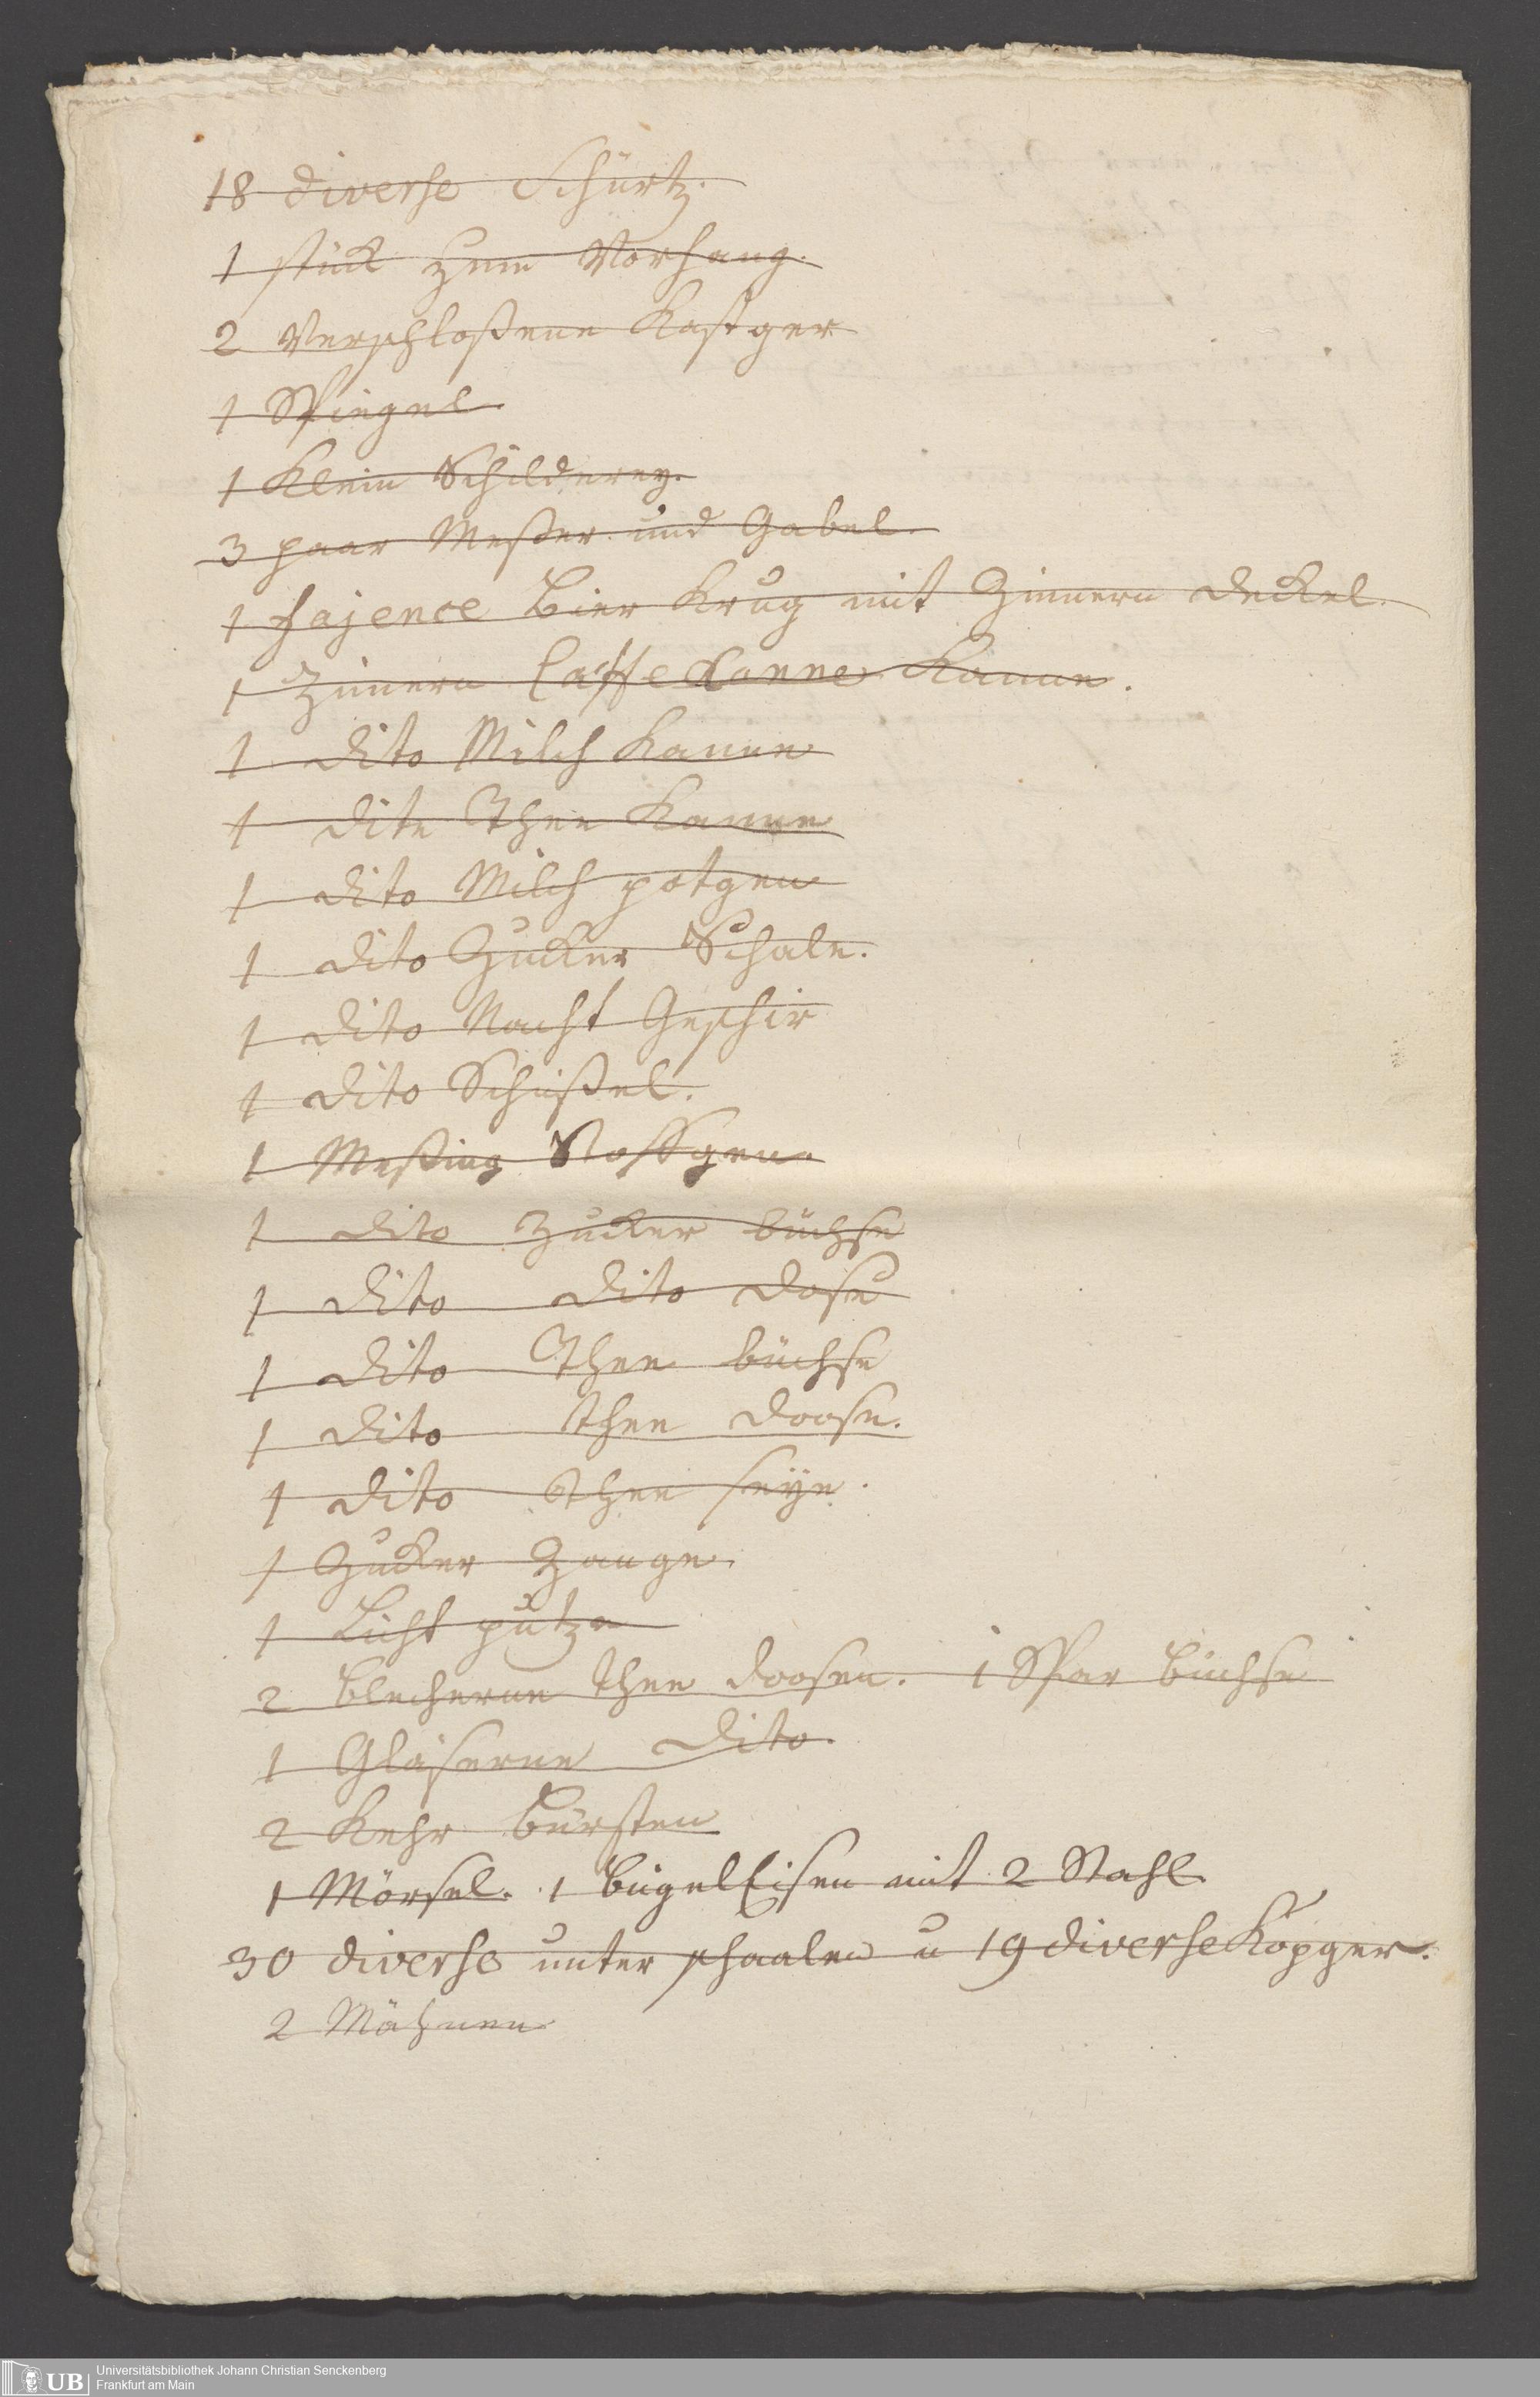 18 diverse Schürtz.
1 stück zum Vorhang.
2 Verschloßene Kastger
1 Spiegel.
1 Klein Schilderey.
3 paar Meßer und Gabel.
1 fajence Bier Krug mit Zinnern deckel.
1 Zinnern Caffe Kanne Kanne.
1 dito Milch Kanne
1 dito Thee Kanne
1 dito Milch potgen
1 dito Zucker Schale.
1 dito Nacht Geschir
1 dito Schüßel.
1 Meßing
1 dito Zucker büchse
1 dito dito dose
1 dito Thee büchse
1 dito thee doose.
1 dito thee seye.
1 Zucker Zange.
1 Licht putze
2 blecherne thee doosen. 1 Spar büchse
1 Gläserne dito.
2 Kehr bürsten
1 Mörsel. 1 bügel Eisen mit 2 Stahl.
30 diverse unter schaalen u 19 diverse Köpger.
2 Mähnen
Universitätsbibliothek Johann Christian Senckenberg
Frankfurt am Main
UB